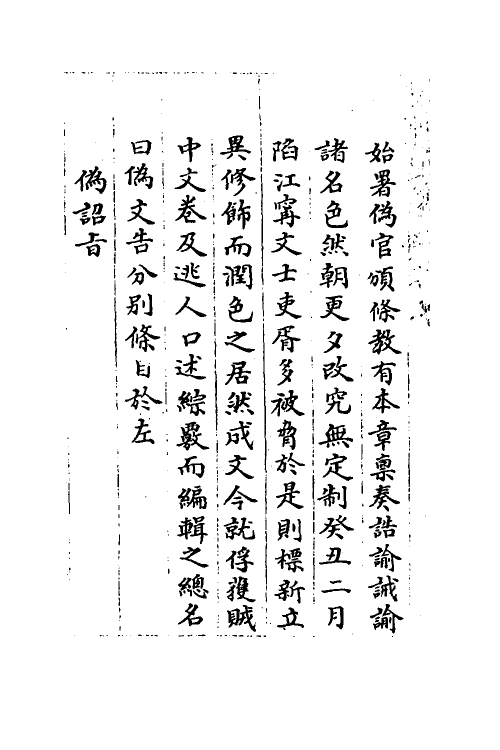 始署偽官頒條教有本章稟奏誥諭誡諭
諸名色然朝更夕改究無定制癸丑二月
陷江甯文士吏胥多被脅於是則標新立
異修飾而潤色之居然成文今就俘獲賊
中文卷及逃人口述綜覈而編輯之總名
曰偽文告分別條目於左
偽詔旨